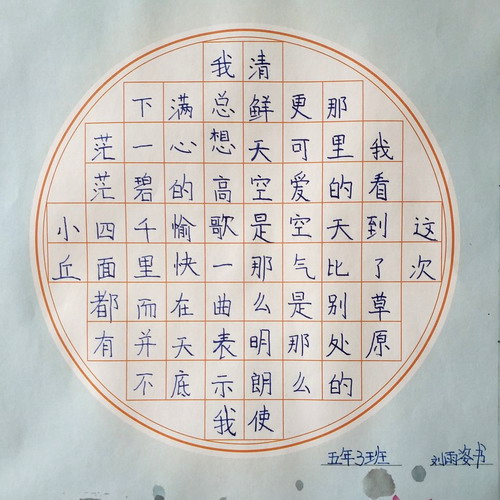 这次
我看到了草原
那里的天比别处的
更可爱空气是那么
清鲜天空是那么明朗使
我总想高歌一曲表示我
满心的愉快在天底
下一碧千里而并不
茫茫四面都有
小丘
五年3班 刘雨姿书